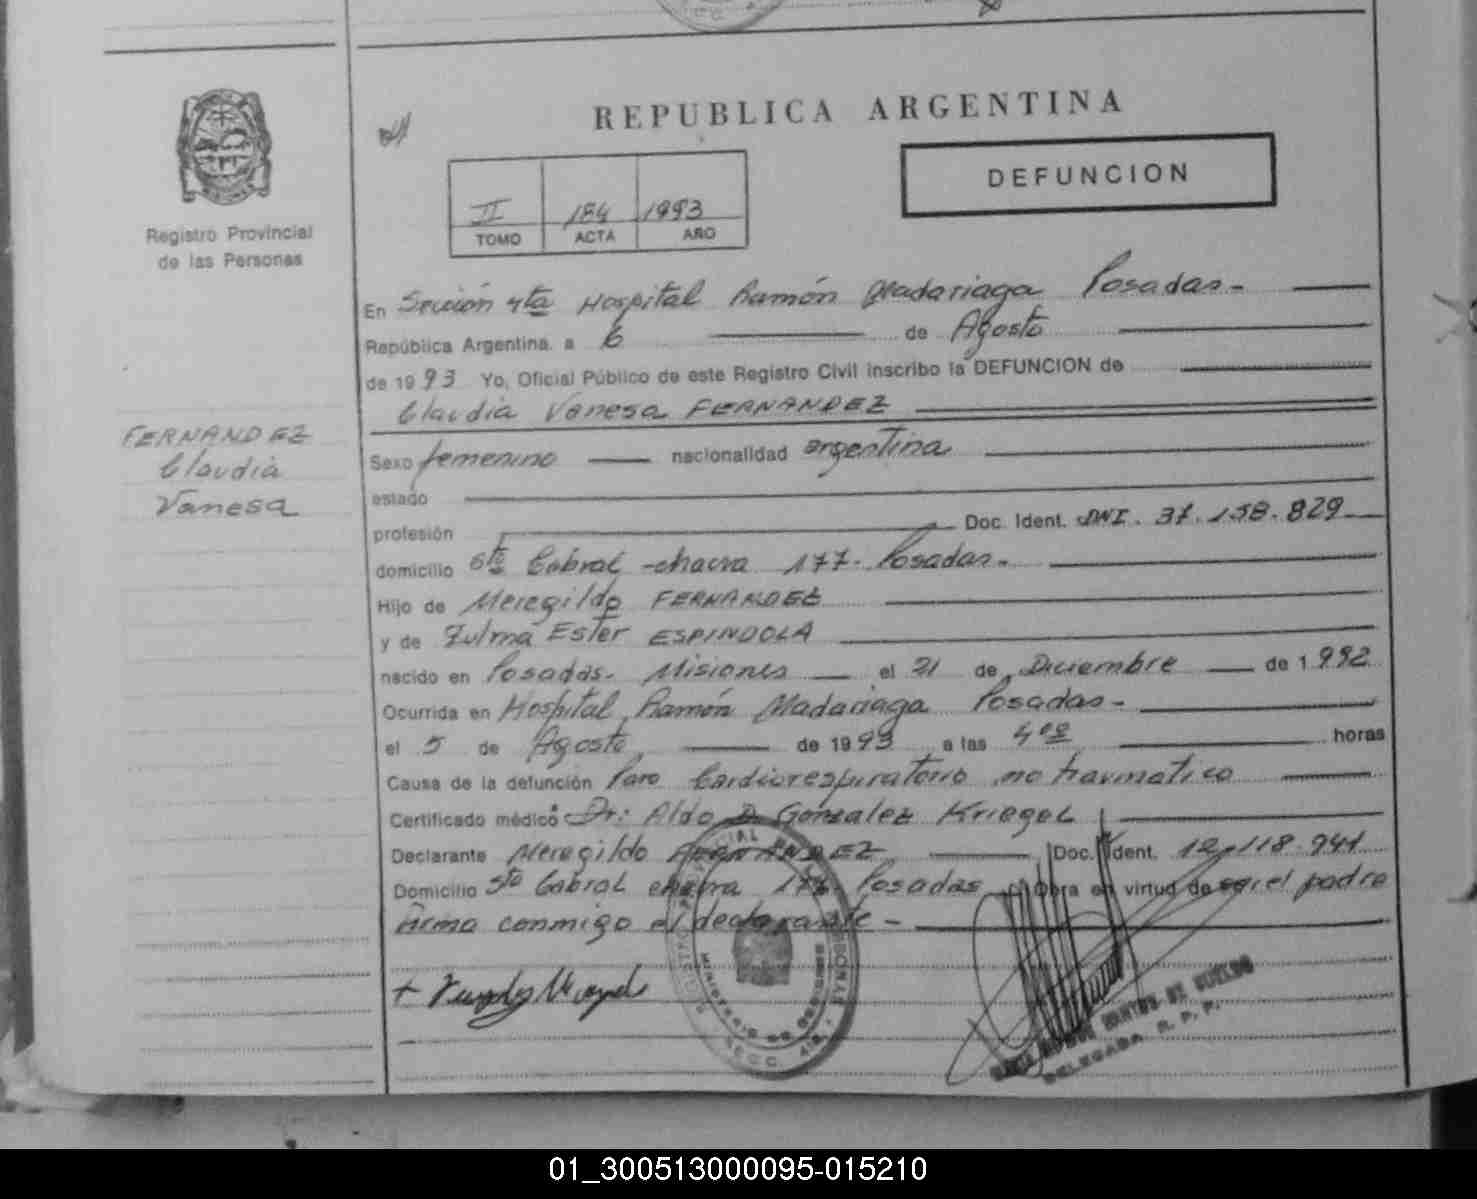 REPUBLICA ARGENTINA
DEFUNCION
II 184 1993
TOMO ACTA AÑO
Registro Provincial
de las Personas
En Sección 4ta Hospital Ramón Madariaga Posadas.-
República Argentina. a 6 de Agosto
de 1993 Yo, Oficial Público de este Registro Civil inscribo la DEFUNCION de
Claudia Vanesa FERNANDEZ
FERNANDEZ
Claudia
Vanesa
Sexo femenino nacionalidad argentina
estado
profesión Doc. Ident. DNI. 37.158.829
domicilio Sto Cabral -chacra 177- Posadas.-
Hijo de Meregildo FERNANDEZ
y de Zulma Ester ESPINDOLA
nacido en Posadas. Misiones el 21 de Diciembre de 1.992
Ocurrida en Hospital Ramón Madariaga Posadas.-
el 5 de Agosto de 1993 a las 4 horas
Causa de la defunción Paro Cardiorespiratorio no traumatico
Certificado médico Dr: Aldo D. Gonzalez Kriegel
Declarante Meregildo FERNANDEZ Doc. Ident. 12.118.941
Domicilio Sto Cabral chacra 177 Posadas Obra en virtud de ser el padre
firma conmigo el declarante -
MINISTERIO DE GOBIERNO
DELEGADA R. P. P.
01_300513000095-015210